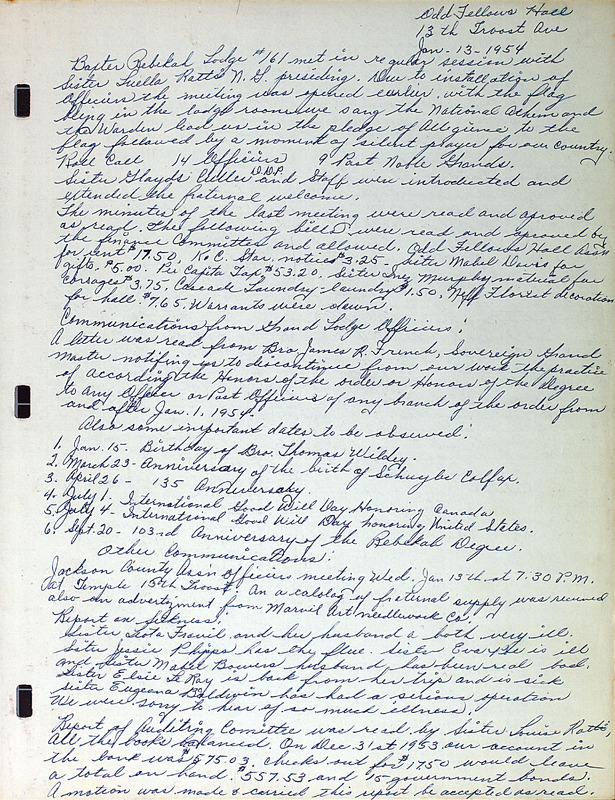 Odd Fellows Hall
13th Troost Ave
Jan. 13-1954
Baxter Rebekah Lodge #161 met in regular session with
Sister Luella Ratto N.G. presiding. Due to installation of
Officers the meeting was opened earlier, with the flag
being in the lodge room we sang the National Athem and
the Warden lead us in the pledge of Allegience to the
flag followed by a moment of silent prayer for our country.
Roll Call 14 Officers 9 Past Noble Grands.
Sister Glayds Miller D.D.P. and Staff were introduced and
extended the fraternal welcome.
The minutes of the last meeting were read and aproved
as read. The following bills were read and aproved by
the finance Committee and allowed. Odd Fellows Hall Ass'n
for rent $17.50, K.C. Star notices $3.25 - Sister Mabel Davis for
gifts, $5.00. Per Capita Tax, $53.20, Sister Inez Murphy material for
corsages $3.75, Cascade Laundry - laundry $1.50, Neff Florist decoration
for hall $7.65. Warrants were drawn.
Communications from Grand Lodge Officers:
A letter was read from Bro. James R. French, Sovereign Grand
Master notifing us to discontinue from our work the practice
of according the Honors of the order or Honors of the Degree
to any Officer or Past Officers of any branch of the order from
and after Jan. 1, 1954.
Also some important dates to be observed:
1. Jan. 15 - Birthday of Bro. Thomas Wildey.
2. March 23 - Anniversary of the birth of Schuyler Colfax.
3. April 26 - 135 Anniversary.
4. July 1 - International Good Will Day Honoring Canada
5. July 4 - International Good Will Day honoring United States.
6. Sept. 20 - 103rd Anniversary of the Rebekah Degree.
Other Communications:
Jackson County Ass'n Officers meeting Wed. Jan 13th at 7:30 P.M.
at Temple 15th Troost. An a catalog of fraternal supply was received
also an advertizment from Marvil Art needlework Co.
Report on sickness.
Sister Lota and her husband a both very ill.
Sister Jessie Phipps has the flue. Sister is ill
and Sister Mabel Bowers husband has been real bad.
Sister Elsie Le Roy is back from her trip and is sick
Sister Eugeana Baldwin has had a serious operation
We were sorry to hear of so much illness.
Report of Auditing Comittee was read by Sister Louise Ratto,
All the books balanced. On Dec. 31st 1953 our account in
the bank was $575.03, checks out for $17.50 would leave
a total on hand $557.53 and 15 government bonds.
A motion was made & carried this report be accepted as read.